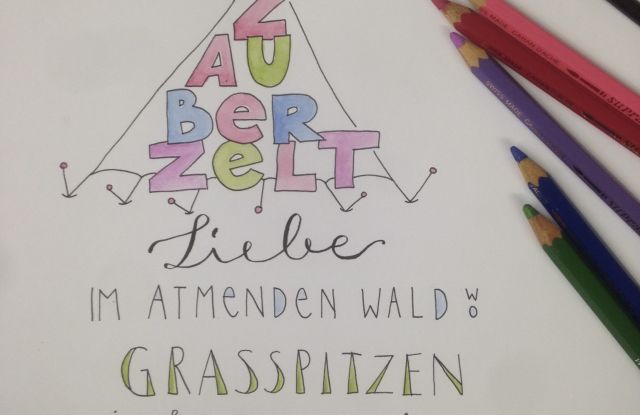 Z
AU
BeR
ZeLT
Liebe
IM ATMeNDEN WALD WO
GRASSPITZEN
SWISS MADE